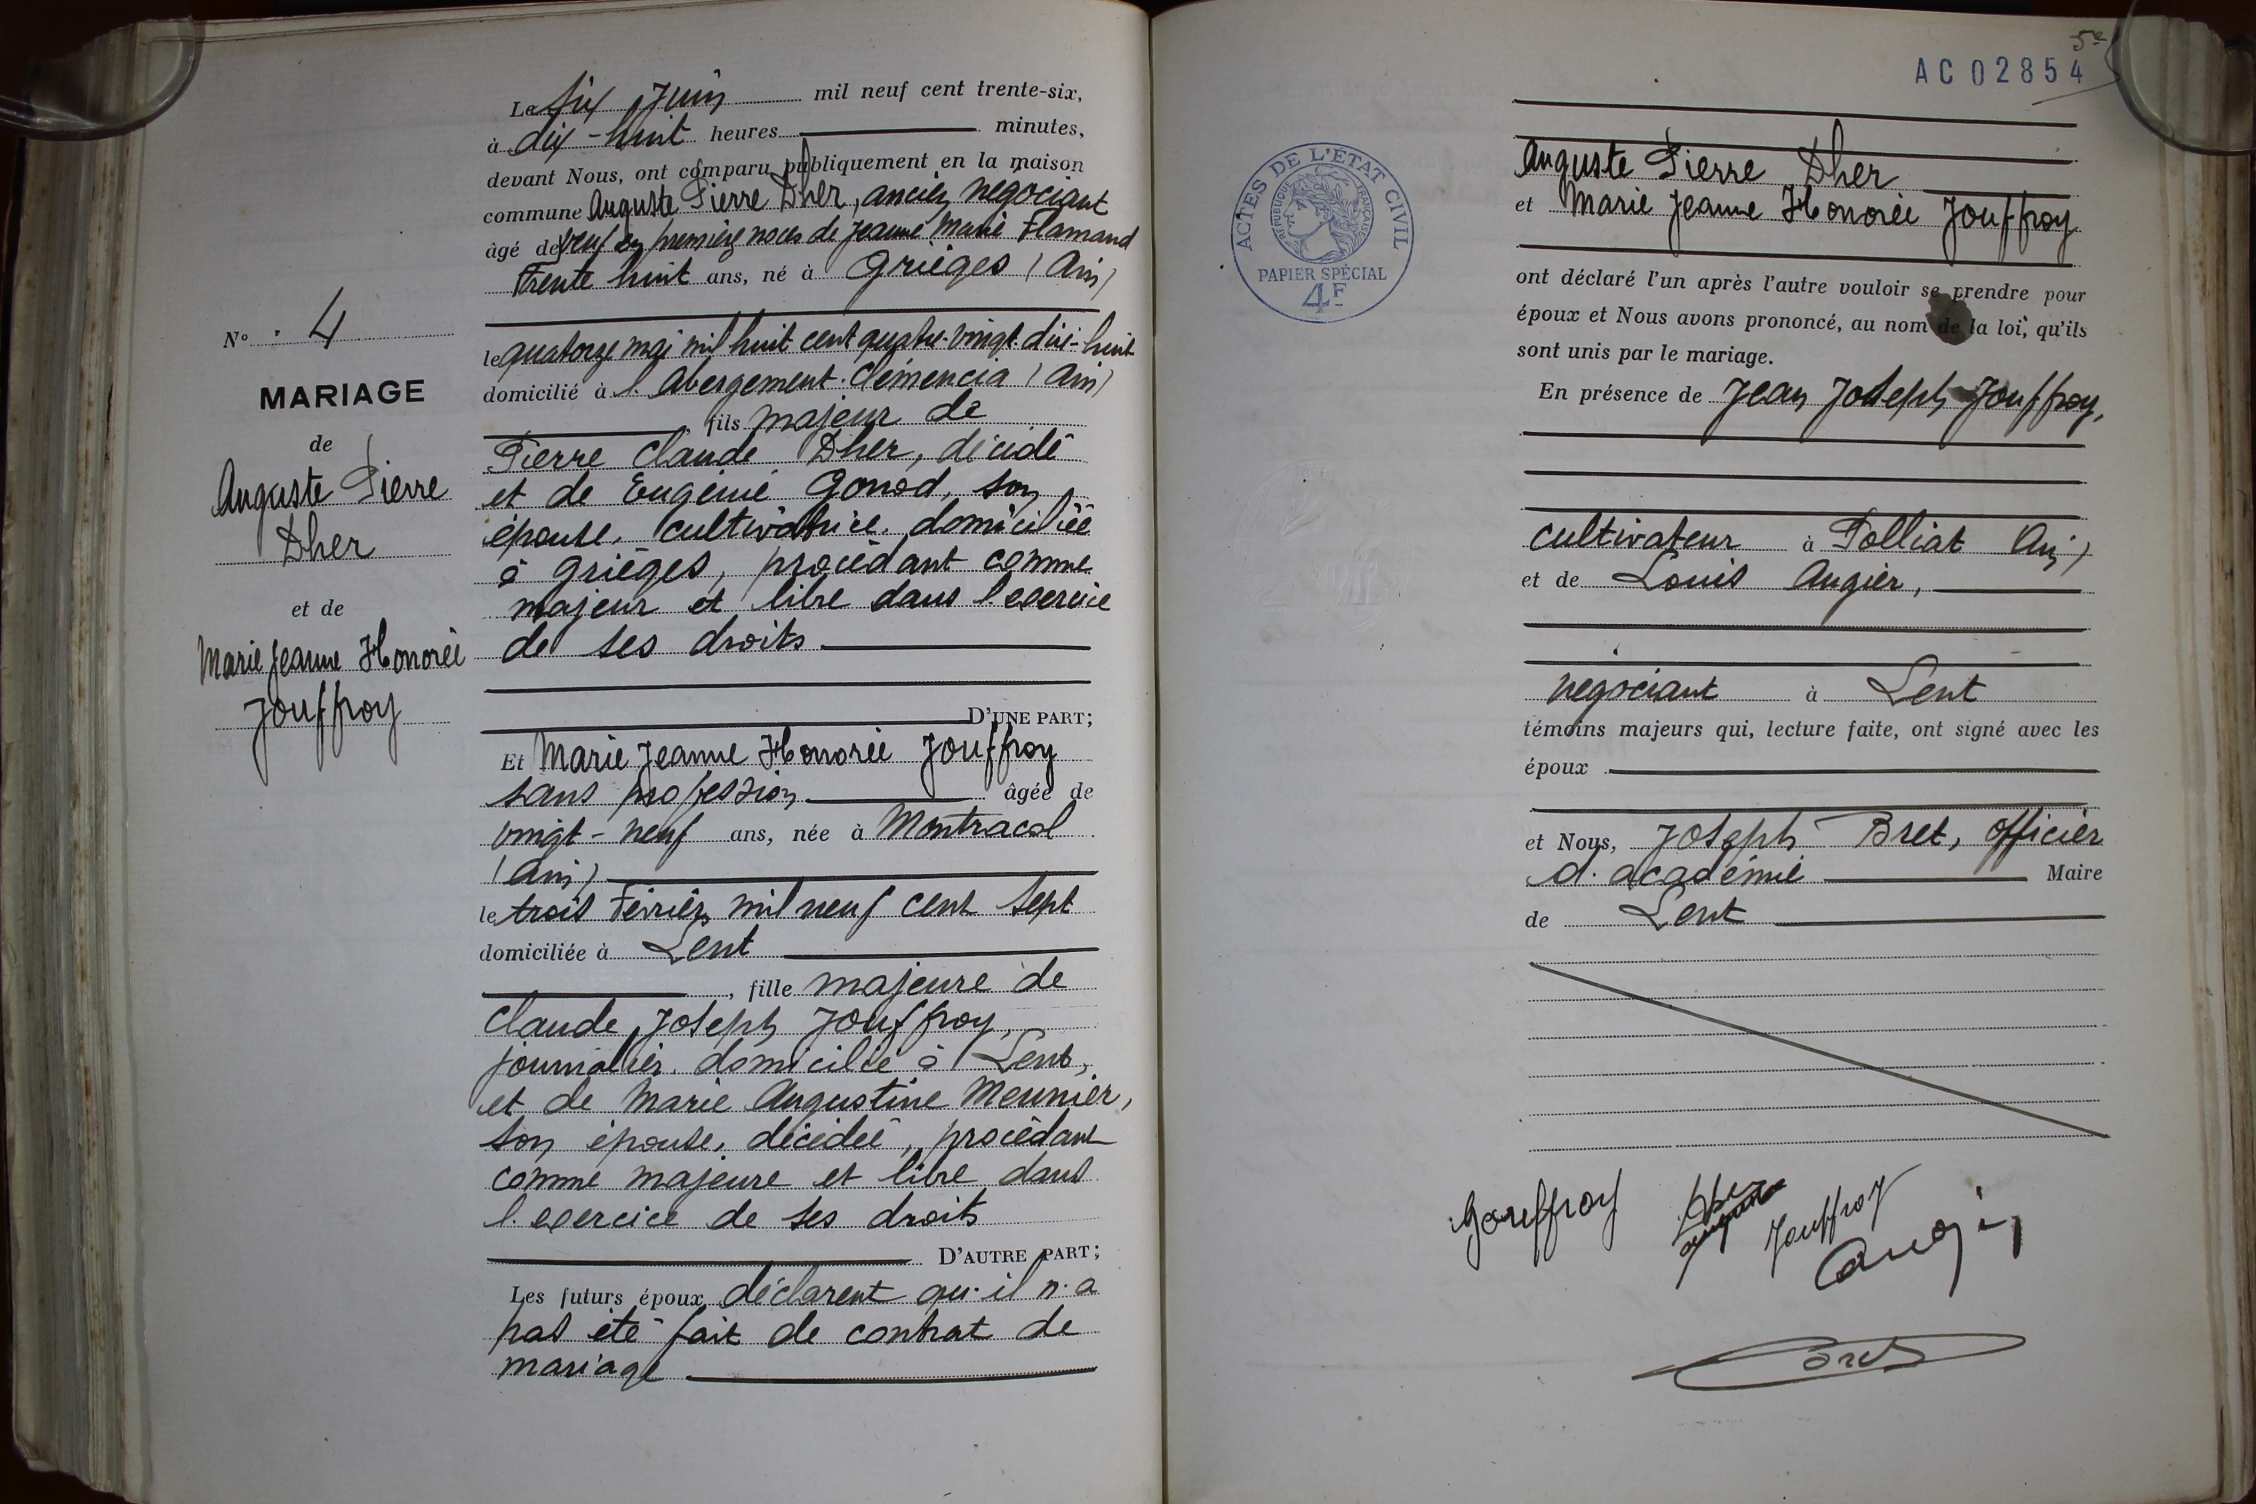 Le six Juin mil neuf cent trente-six,
à dix-huit heures minutes,
devant Nous, ont comparu publiquement en la maison
commune Auguste Pierre Dher, ancien négociant
âgé de veuf en premières noces de Jeanne Marie Flamand
Trente huit ans, né à Grièges (Ain)
le quatorze mai mil huit cent quatre-vingt dix-huit
domicilié à l'Abergement-Clémencia (Ain)
, fils majeur de
Pierre Claude Dher, décédé
et de Eugénie Gonod, son
épouse, cultivatrice, domiciliée
à Grièges, procédant comme
majeur et libre dans l'exercice
de ses droits
D'UNE PART;
Et Marie Jeanne Honorée Jouffroy
sans profession âgée de
vingt-neuf ans, née à Montracol
(Ain)
le trois Février mil neuf cent sept
domiciliée à Lent
, fille majeure de
Claude Joseph Jouffroy,
journalier, domicilié à Lent,
et de Marie Augustine Meunier,
son épouse, décédée, procédant
comme majeure et libre dans
l'exercice de ses droits
D'AUTRE PART;
Les futurs époux déclarent qu'il n'a
pas été fait de contrat de
mariage
No 4
MARIAGE
de
Auguste Pierre
Dher
et de
Marie Jeanne Honorée
Jouffroy
5e
AC02854
ACTES DE L'ÉTAT CIVIL
RÉPUBLIQUE FRANÇAISE
PAPIER SPÉCIAL
4F
Auguste Pierre Dher
et Marie Jeanne Honorée Jouffroy
ont déclaré l'un après l'autre vouloir se prendre pour
époux et Nous avons prononcé, au nom de la loi, qu'ils
sont unis par le mariage.
En présence de Jean Joseph Jouffroy,
cultivateur à Polliat (Ain)
et de Louis Augier,
négociant à Lent
témoins majeurs qui, lecture faite, ont signé avec les
époux
et Nous, Joseph Bret, officier
d'académie Maire
de Lent
Jouffroy
Dher
Auguste
Jouffroy
Augier
Bret